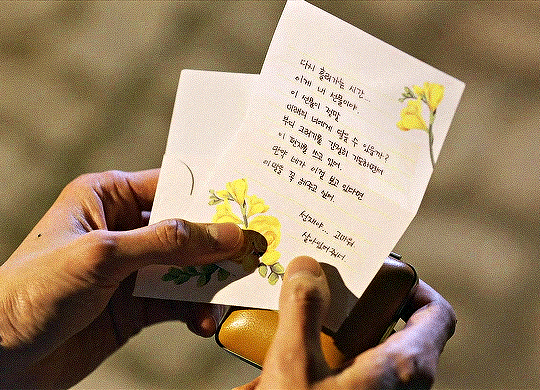 다시 흘러가는 시간...
이게 내 선물이야.
이 선물이 정말
미래의 너에게 닿을 수 있을까?
부디 그러기를 간절히 기도하면서
이 편지를 쓰고 있어.
만약 네가 이걸 보고 있다면
이 말을 꼭 해주고 싶어.
선재야... 고마워
살아있어줘서